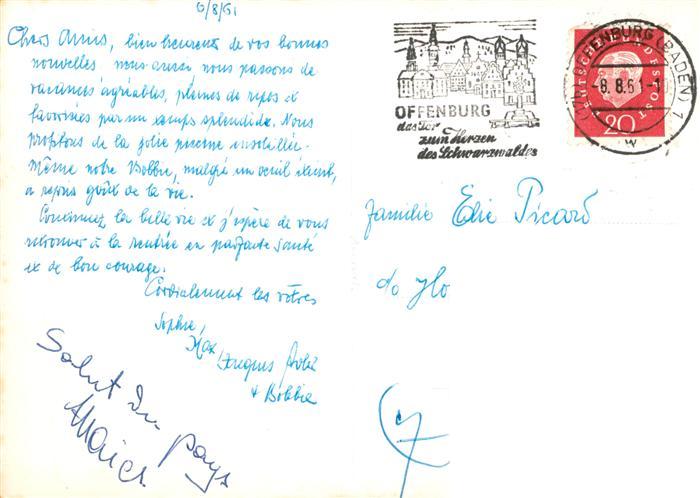 6/8/61
Chers Amis, bien heureux de vos bonnes
nouvelles nous aussi nous passons de
vacances agréables, pleines de repos et
favorisées par un temps splendide. Nous
profitons de la jolie piscine ensoleillée.
Même notre Bobbie, malgré un œil éteint,
a repris goût de la vie.
Continuez la belle vie et j'espère de vous
retrouver à la rentrée en parfaite santé
et de bon courage.
Cordialement les vôtres
Sophie,
Max, Jacques
+ Bobbie
Salut du pays
OFFENBURG
das Tor
zum Herzen
des Schwarzwaldes
OFFENBURG (BADEN) 1
-8.8.61-1
w
DEUTSCHE BUNDESPOST
20
Familie Élie Picard